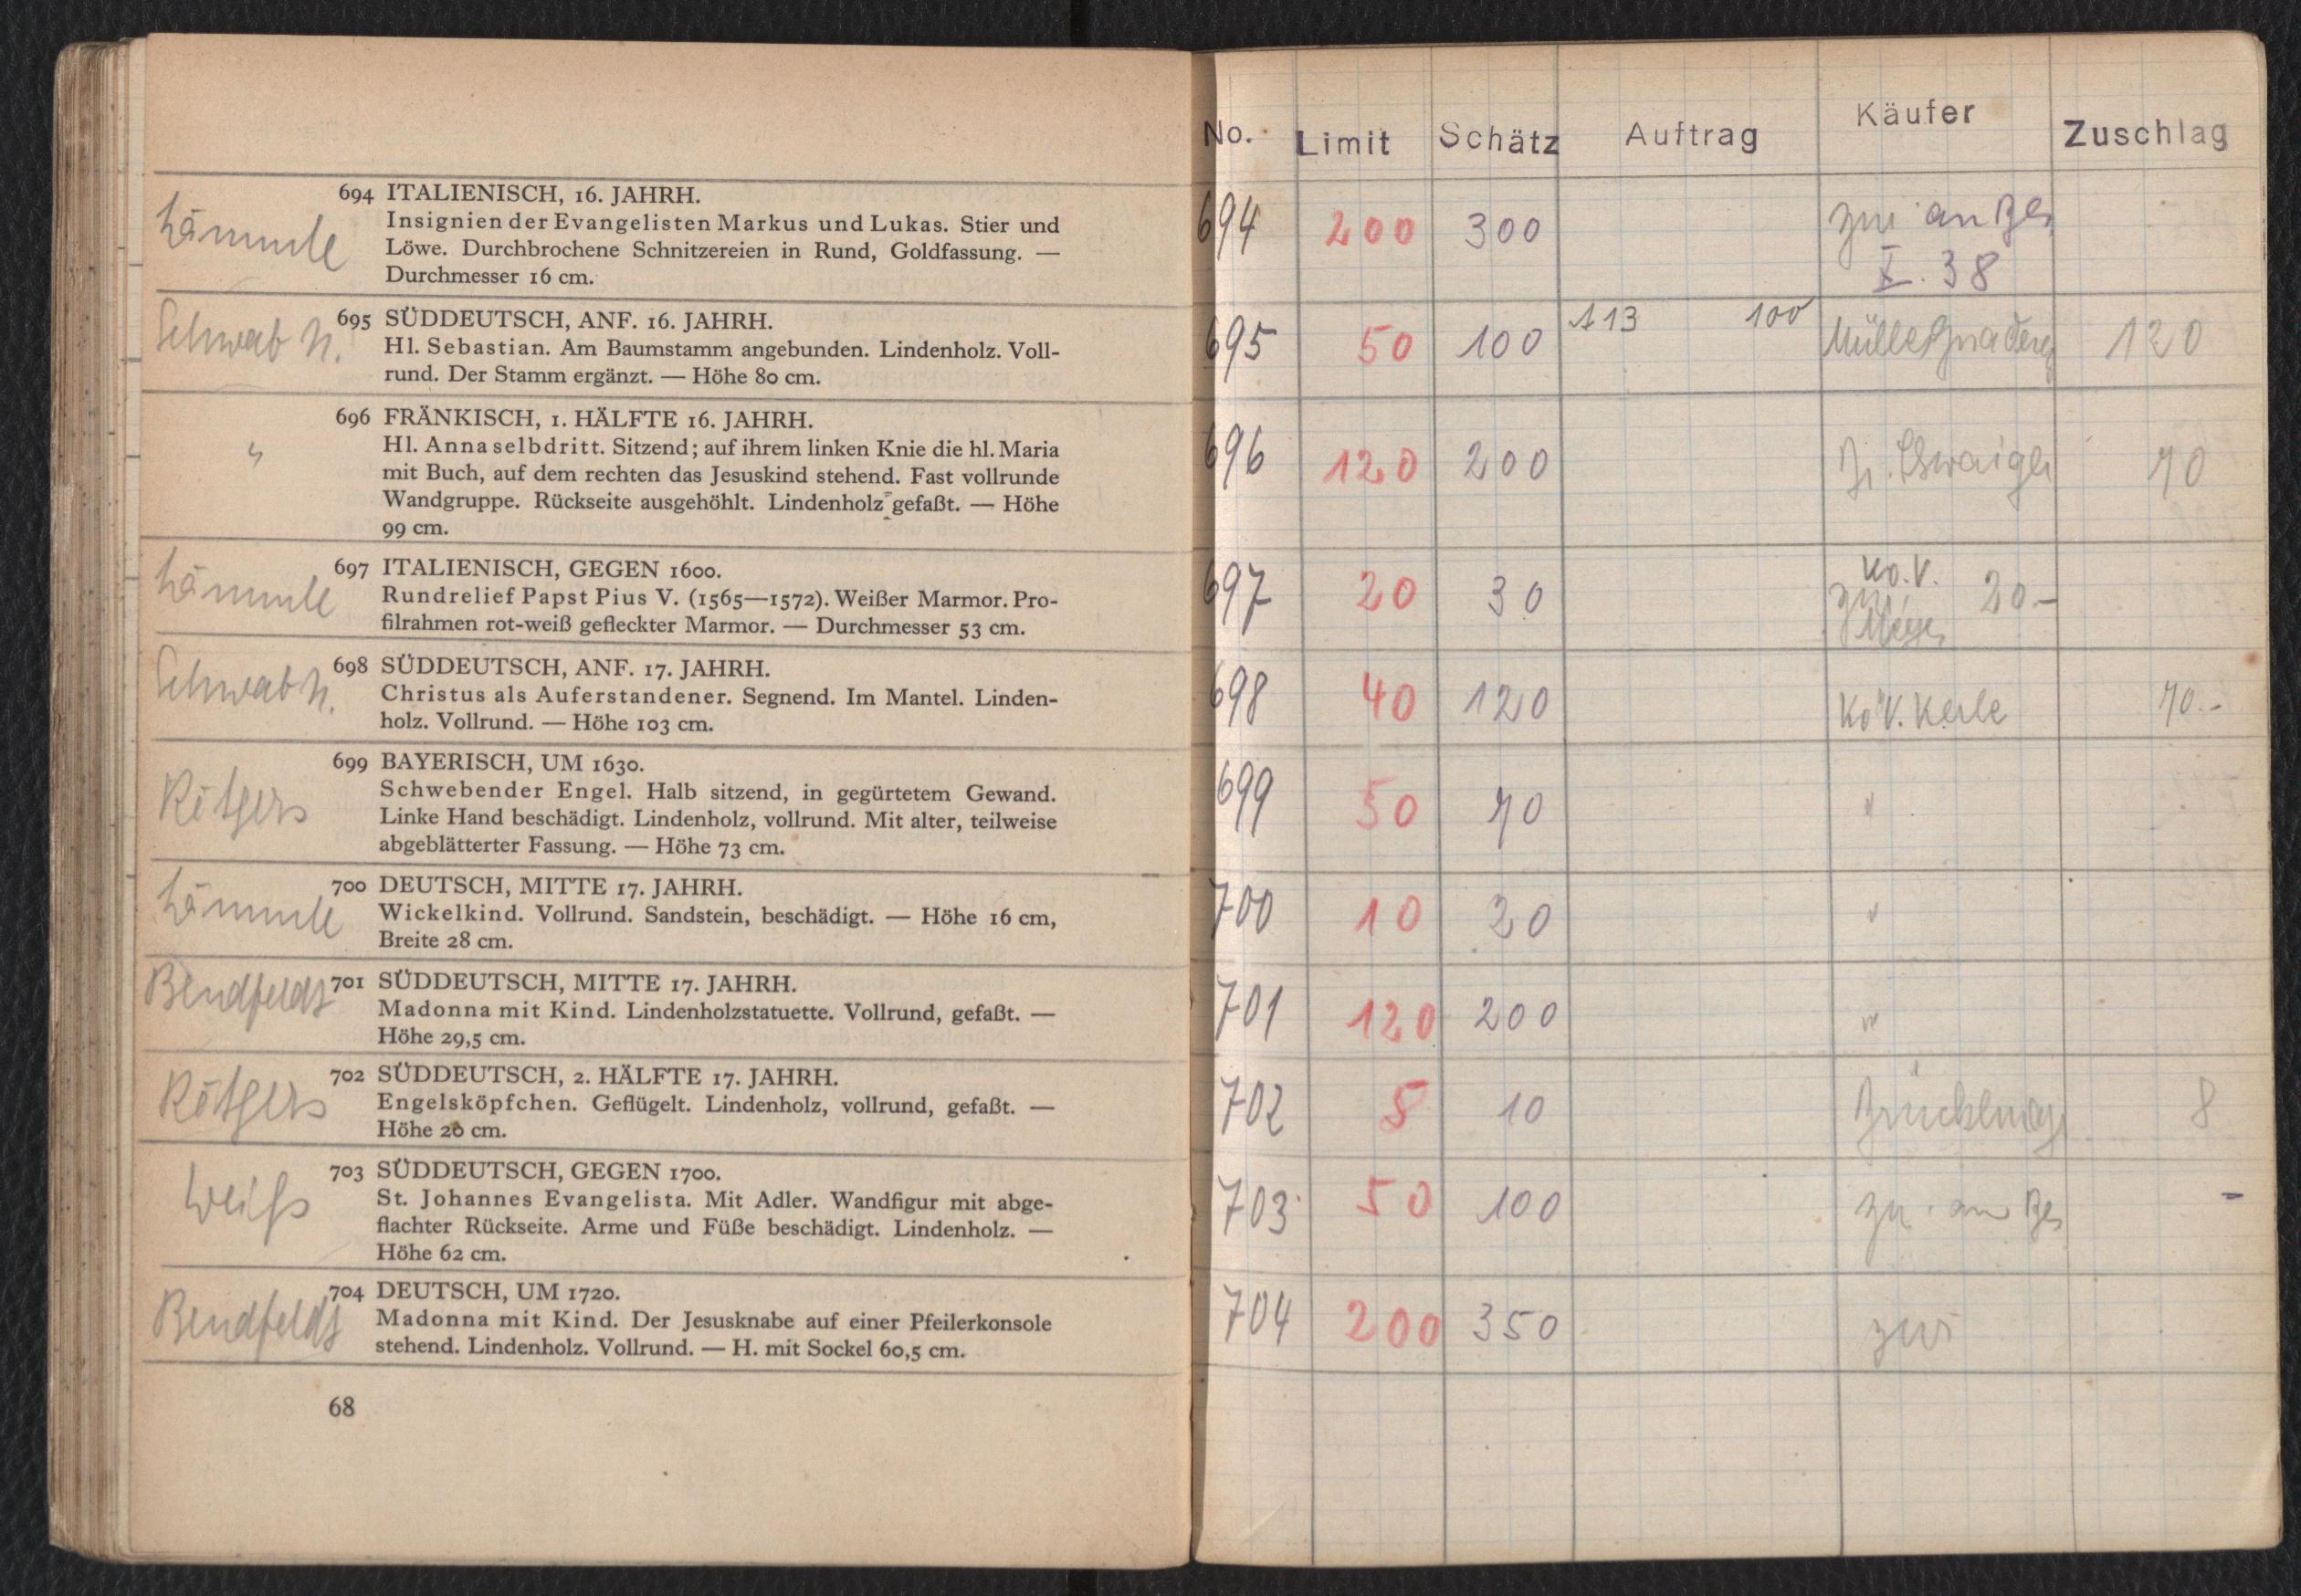 Lämmle
694 ITALIENISCH, 16. JAHRH.
Insignien der Evangelisten Markus und Lukas. Stier und
Löwe. Durchbrochene Schnitzereien in Rund, Goldfassung. —
Durchmesser 16 cm.
Schwab N.
695 SÜDDEUTSCH, ANF. 16. JAHRH.
Hl. Sebastian. Am Baumstamm angebunden. Lindenholz. Voll-
rund. Der Stamm ergänzt. — Höhe 80 cm.
"
696 FRÄNKISCH, 1. HÄLFTE 16. JAHRH.
Hl. Anna selbdritt. Sitzend; auf ihrem linken Knie die hl. Maria
mit Buch, auf dem rechten das Jesuskind stehend. Fast vollrunde
Wandgruppe. Rückseite ausgehöhlt. Lindenholz gefaßt. — Höhe
99 cm.
Lämmle
697 ITALIENISCH, GEGEN 1600.
Rundrelief Papst Pius V. (1565—1572). Weißer Marmor. Pro-
filrahmen rot-weiß gefleckter Marmor. — Durchmesser 53 cm.
Schwab N.
698 SÜDDEUTSCH, ANF. 17. JAHRH.
Christus als Auferstandener. Segnend. Im Mantel. Linden-
holz. Vollrund. — Höhe 103 cm.
Rötgers
699 BAYERISCH, UM 1630.
Schwebender Engel. Halb sitzend, in gegürtetem Gewand.
Linke Hand beschädigt. Lindenholz, vollrund. Mit alter, teilweise
abgeblätterter Fassung. — Höhe 73 cm.
Lämmle
700 DEUTSCH, MITTE 17. JAHRH.
Wickelkind. Vollrund. Sandstein, beschädigt. — Höhe 16 cm,
Breite 28 cm.
Bendfeldt
701 SÜDDEUTSCH, MITTE 17. JAHRH.
Madonna mit Kind. Lindenholzstatuette. Vollrund, gefaßt. —
Höhe 29,5 cm.
Rötgers
702 SÜDDEUTSCH, 2. HÄLFTE 17. JAHRH.
Engelsköpfchen. Geflügelt. Lindenholz, vollrund, gefaßt. —
Höhe 20 cm.
Weiß
703 SÜDDEUTSCH, GEGEN 1700.
St. Johannes Evangelista. Mit Adler. Wandfigur mit abge-
flachter Rückseite. Arme und Füße beschädigt. Lindenholz. —
Höhe 62 cm.
Bendfeldt
704 DEUTSCH, UM 1720.
Madonna mit Kind. Der Jesusknabe auf einer Pfeilerkonsole
stehend. Lindenholz. Vollrund. — H. mit Sockel 60,5 cm.
68
No. Limit Schätz Auftrag Käufer Zuschlag
694 200 300 zur an
X. 38
695 50 100 A13 100 120
696 120 200 70
Ko.V.
697 20 30 zur 20.-
698 40 120 Ko V. Kerle 70.-
699 50 70 "
700 10 20 "
701 120 200 "
702 5 10 8
703 50 100 zur an -
704 200 350 zur